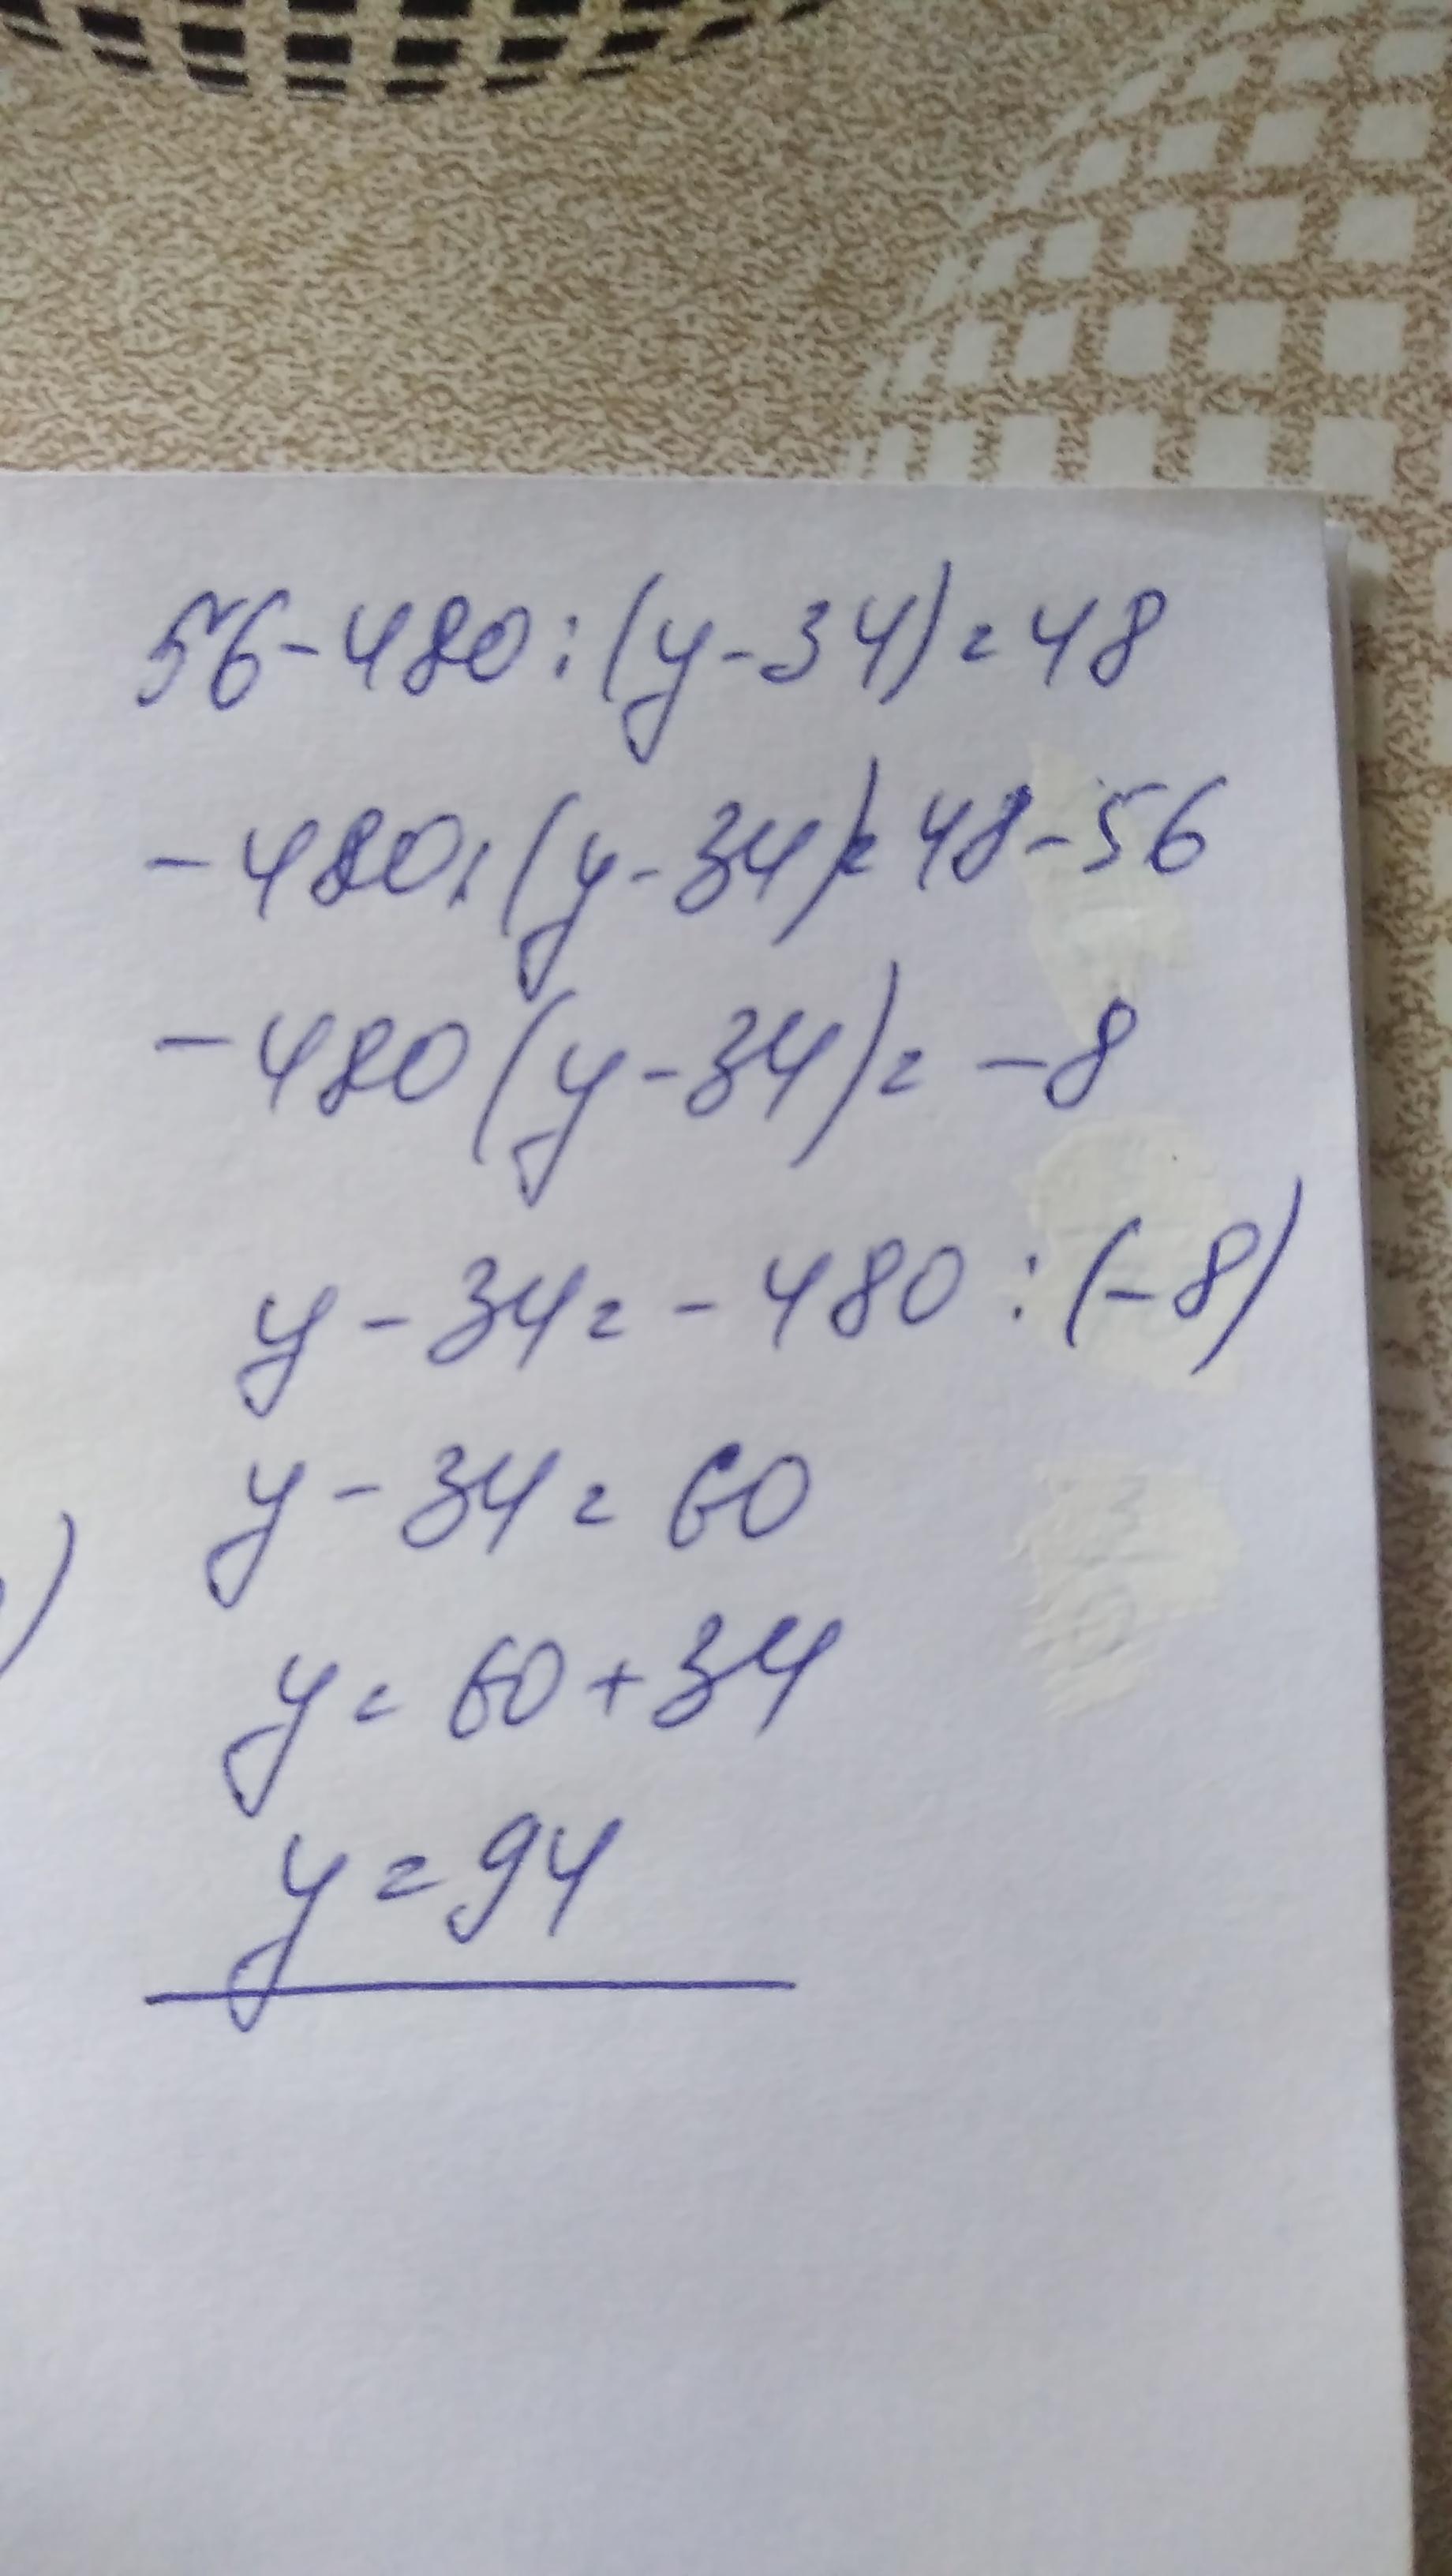 56-480:(y-34)=48
-480:(y-34)=48-56
-480(y-34)=-8
y-34=-480:(-8)
y-34=60
)
y=60+34
y=94